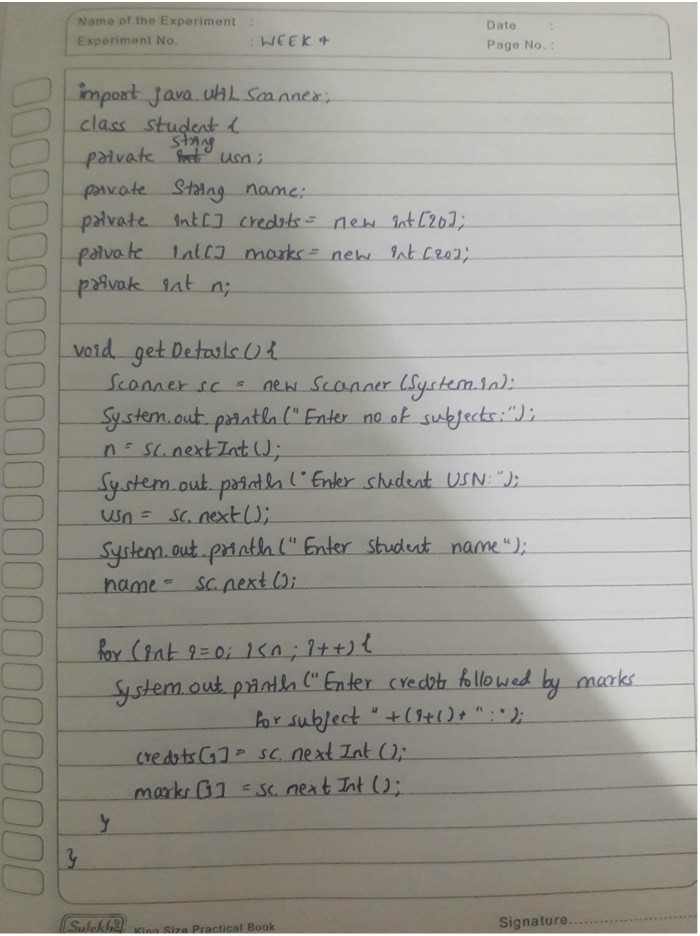 Name of the Experiment :
Date :
Experiment No. : WEEK 4
Page No. :
import java.util.Scanner;
class student {
String
private int usn;
private String name;
private int[] credits = new int[20];
private int[] marks = new int[20];
private int n;
void getDetails(){
Scanner sc = new Scanner(System.in);
System.out.println("Enter no of subjects:");
n = sc.nextInt();
System.out.println("Enter student USN:");
usn = sc.next();
System.out.println("Enter student name");
name = sc.next();
for (int i=0; i<n ; i++){
System.out.println("Enter credits followed by marks
for subject "+(i+1)+":");
credits[i] = sc.nextInt();
marks[i] = sc.nextInt();
}
}
Sulekha King Size Practical Book
Signature..................